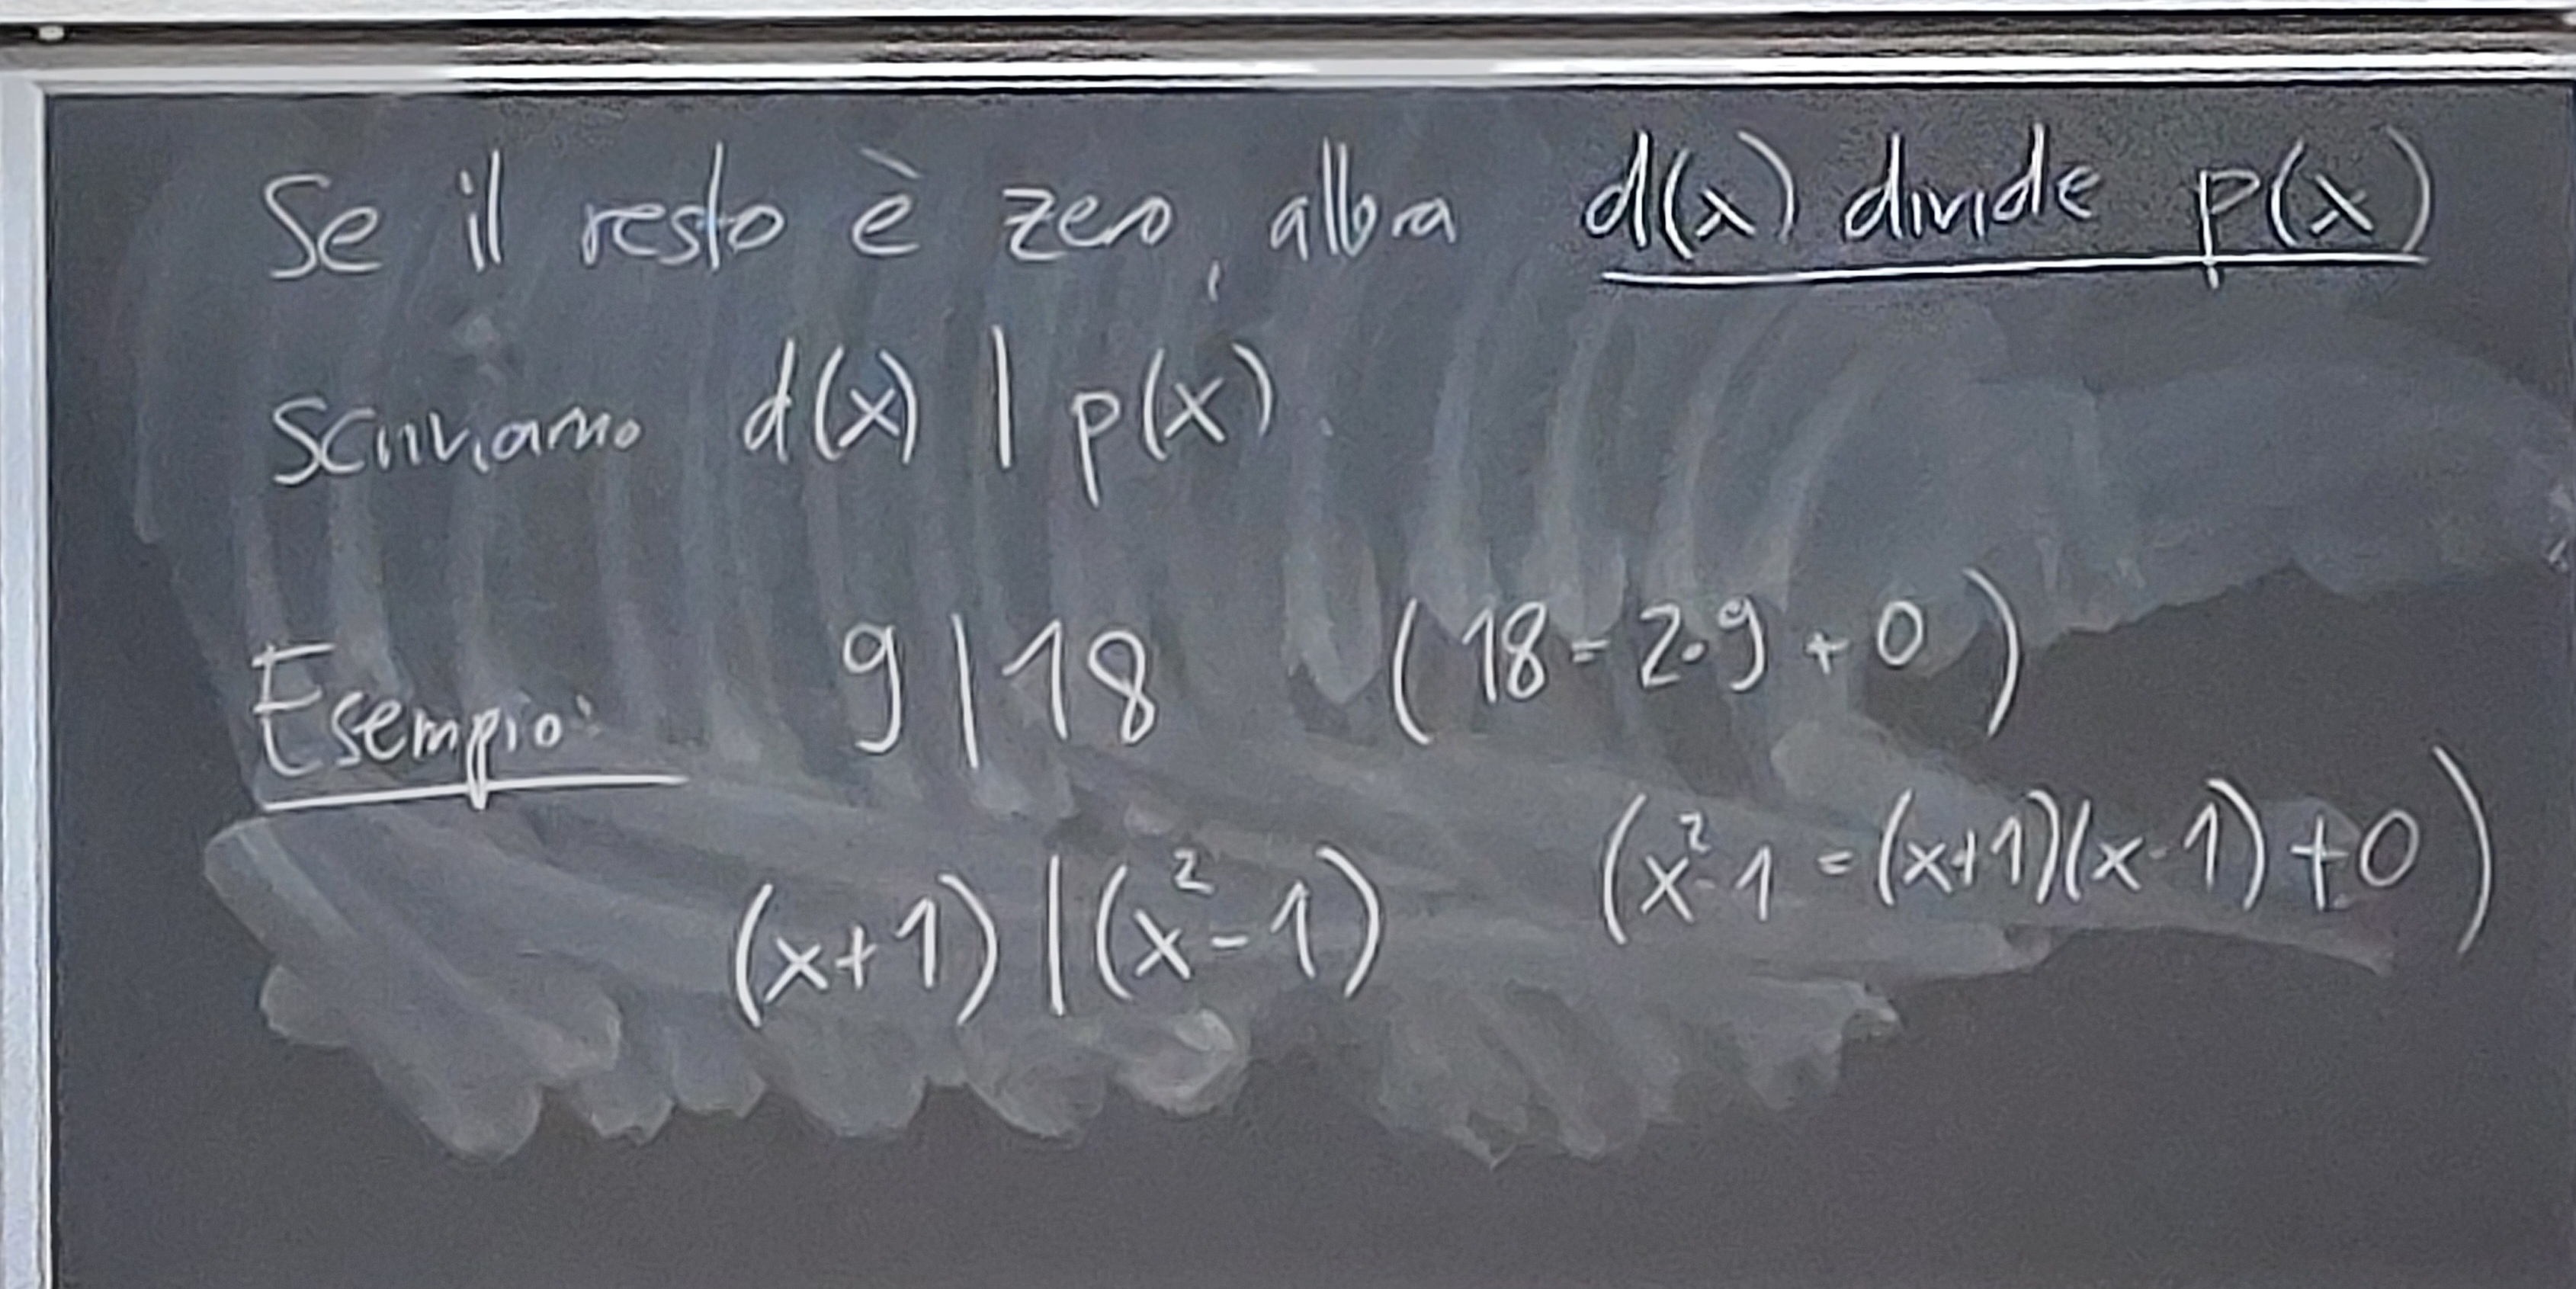 Se il resto è zero, allora d(x) divide p(x)
scriviamo d(x) | p(x).
Esempio: 9 | 18 (18 = 2·9 + 0)
(x+1) | (x²-1) (x²-1 = (x+1)(x-1) + 0)